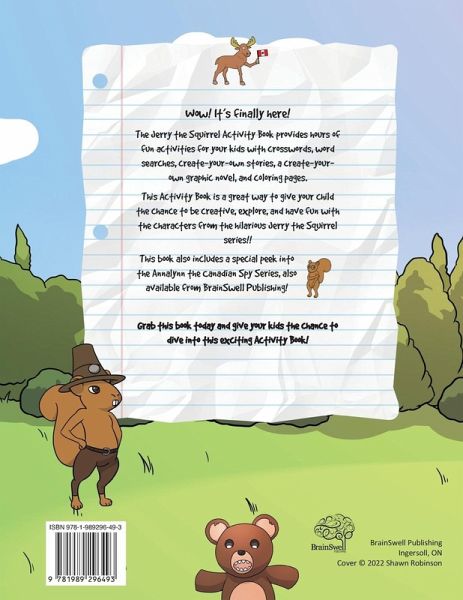 Wow! It's finally here!
The Jerry the Squirrel Activity Book provides hours of
fun activities for your kids with crosswords, word
searches, create-your-own stories, a create-your-
own graphic novel, and coloring pages.
This Activity Book is a great way to give your child
the chance to be creative, explore, and have fun with
the characters from the hilarious Jerry the Squirrel
series!!
This book also includes a special peek into
the Annalynn the Canadian Spy Series, also
available from BrainSwell Publishing!
Grab this book today and give your kids the chance to
dive into this exciting Activity Book!
ISBN 978-1-989296-49-3
9 781989 296493
BrainSwell
BrainSwell Publishing
Ingersoll, ON
Cover © 2022 Shawn Robinson